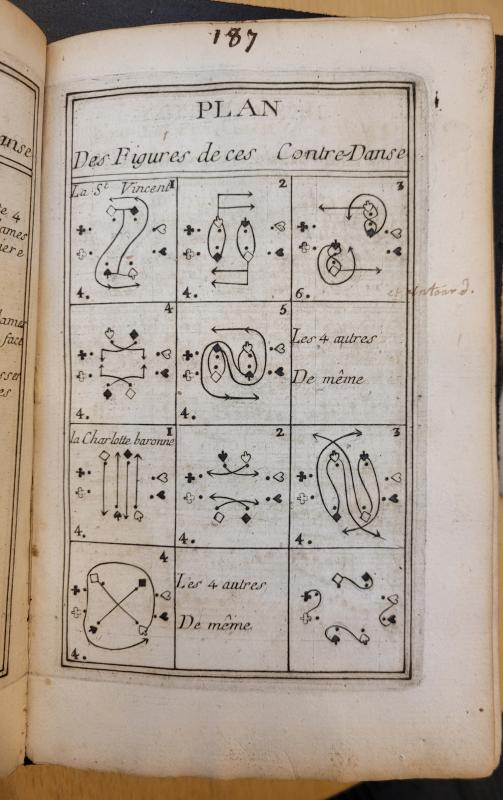 187
PLAN
Des Figures de ces Contre-Danse
La S.t Vincent 1
2
3
4.
4.
6.
4
5
Les 4 autres
De même
4.
4.
la Charlotte baronne 1
2
3
4.
4.
4.
4
Les 4 autres
De même
4.
anse
te 4
ames
iere
lames
face
sser
es